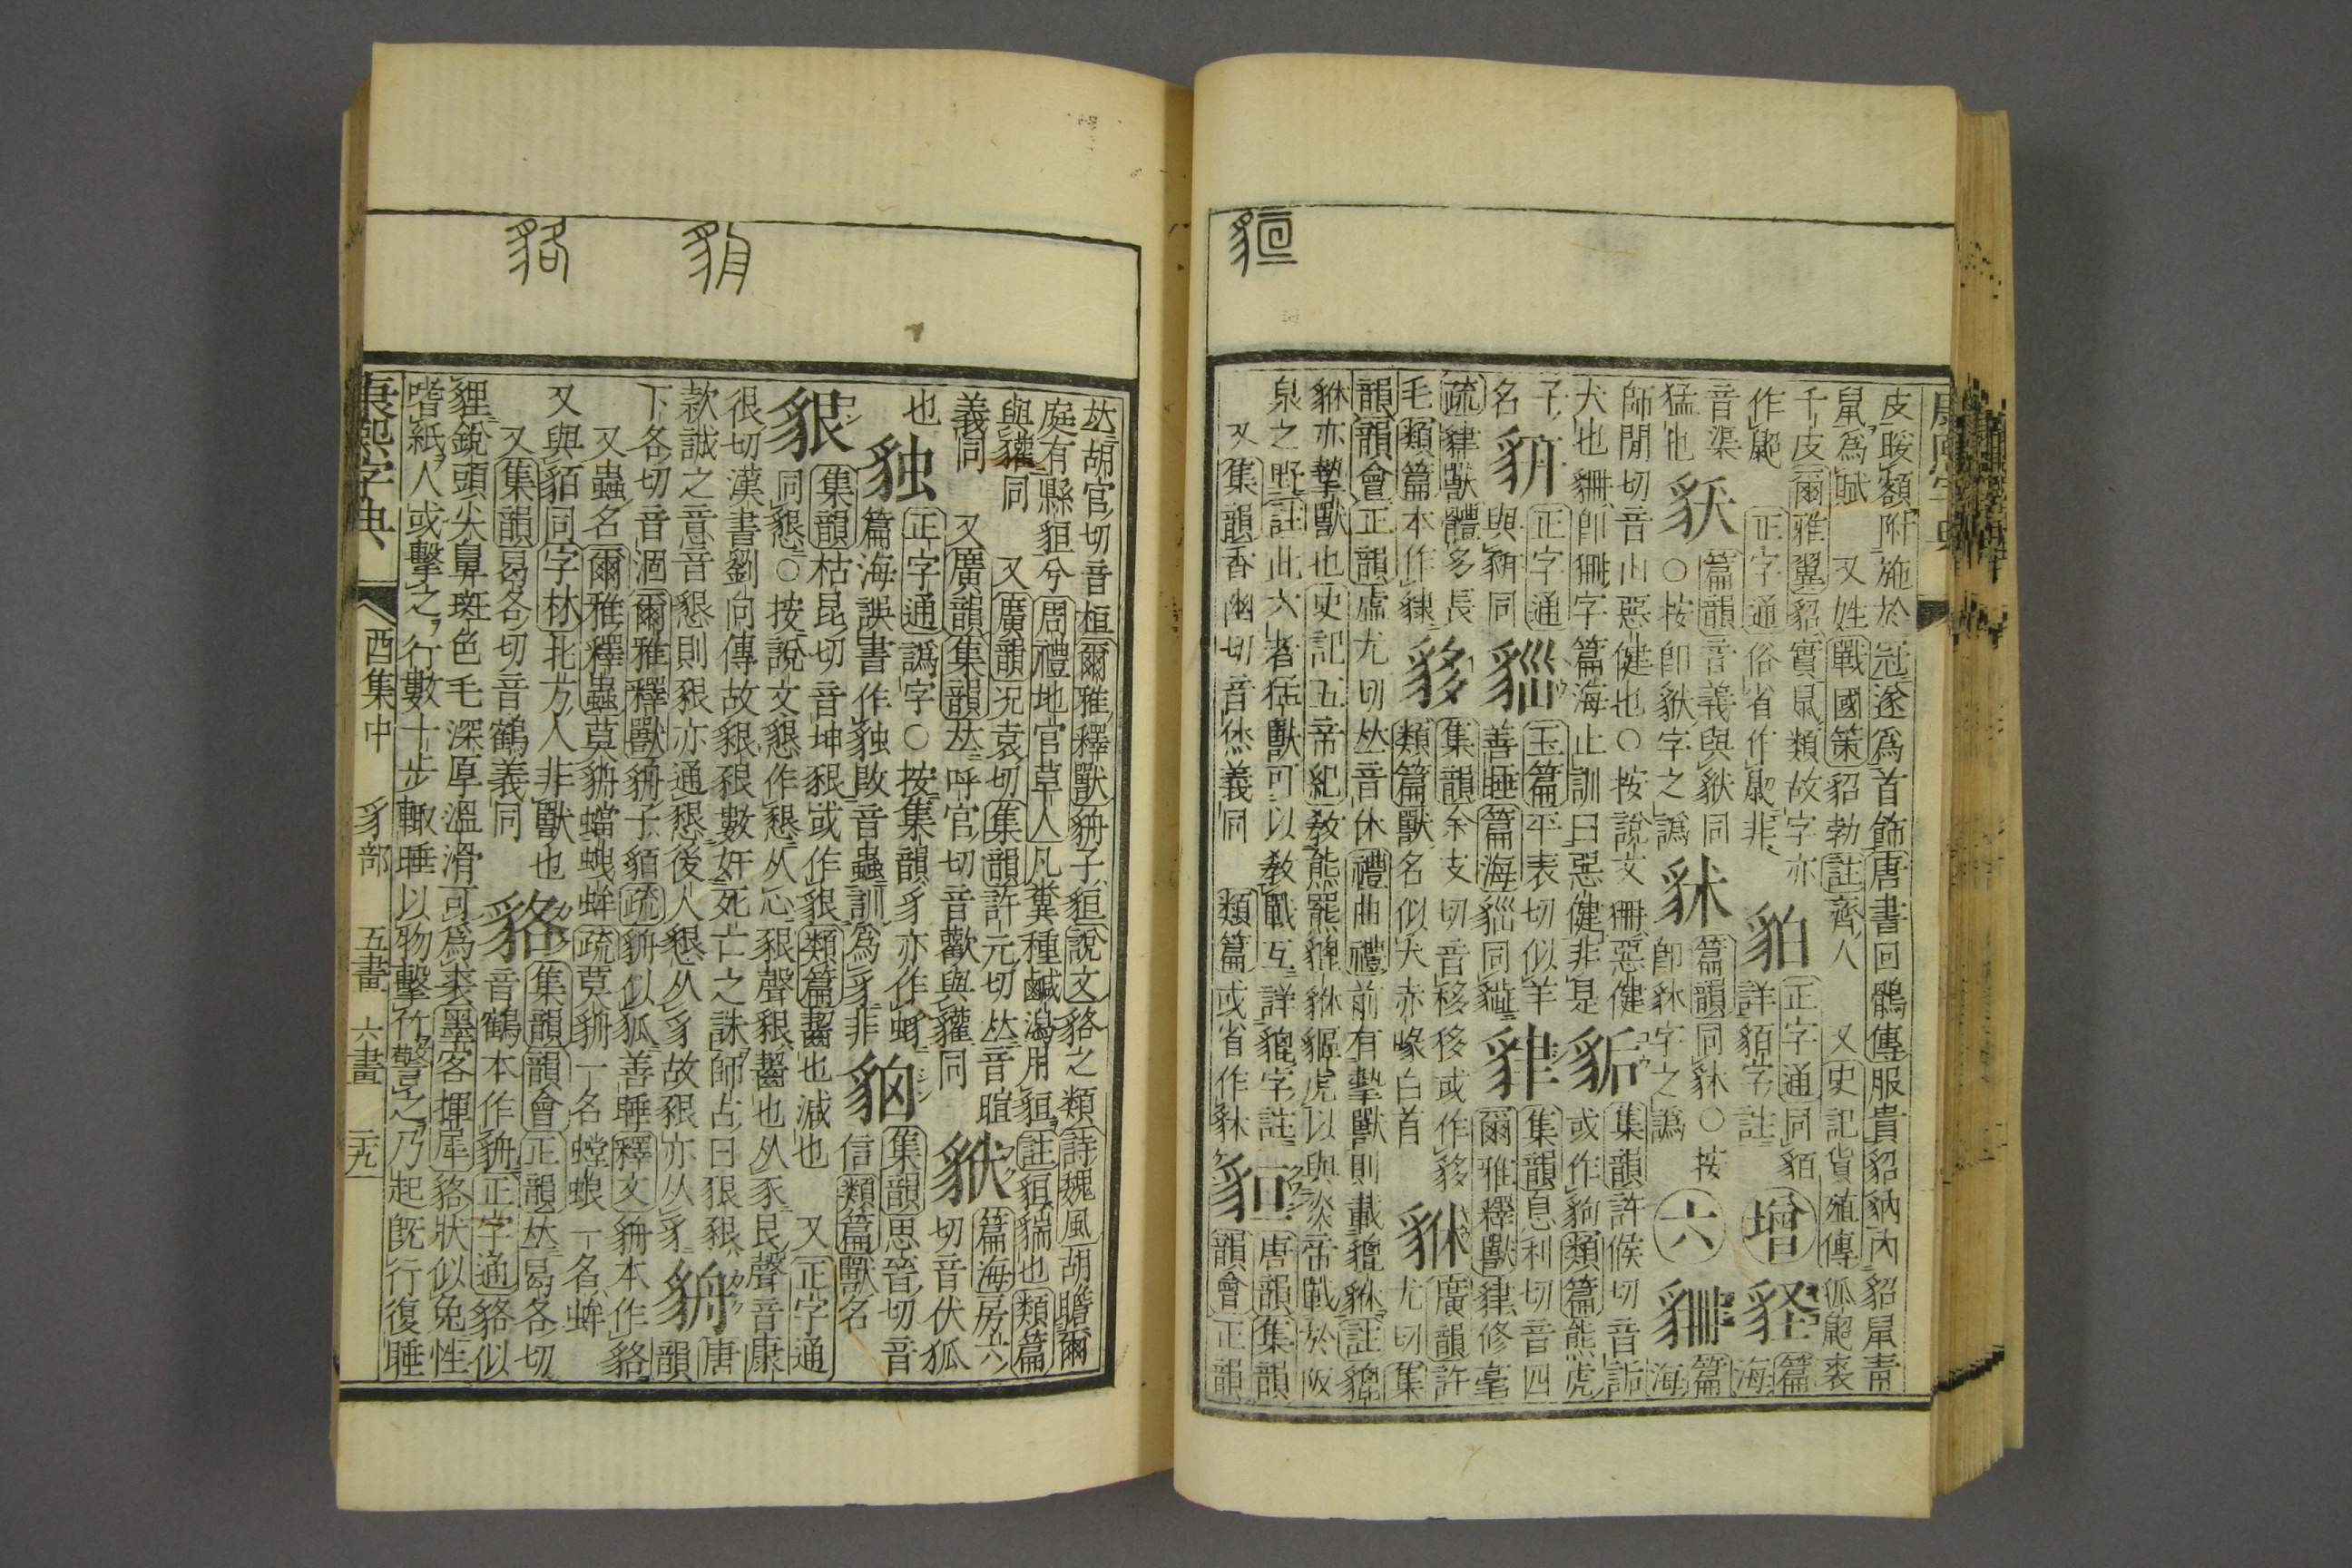 皮暖額附施於冠遂爲首飾唐書回鶻傳服貴貂豽內貂鼠靑
鼠爲賦 又姓戰國策貂勃註齊人 又史記貨殖傳狐鼦裘
千皮爾雅翼貂實鼠類故字亦
作鼦正字通俗省作鼦非
貃正字通同貊詳貊字註
增
䝭篇海
音渠
猛也
篇韻音義與㹤同
○按卽㹤字之譌
篇韻同貅○按
卽貅字之譌
六
篇海
師閒切音山惡健也○按說文㹪惡健
犬也卽㹪字篇海止訓曰惡健非是
集韻許候切音詬
或作豞類篇熊虎
子
名
正字通
與豣同
玉篇平表切似羊
善睡篇海同
集韻息利切音四
爾雅釋獸貄修毫
疏貄獸體多長
毛類篇本作𧳙
貄
貅
䝯
集韻余支切音移移或作䝯
類篇獸名似犬赤喙白首
廣韻許
尤切集
韻韻會正韻虛尤切𠀤音休禮曲禮前有摯獸則載貔貅註貔
貅亦摯獸也史記五帝紀敎熊羆貔貅貙虎以與炎帝戰於阪
泉之野註此六者猛獸可以敎戰互詳貔字註
又集韻香幽切音烋義同 類篇或省作𧲾
貆
唐韻集韻
韻會正韻
𠀤胡官切音桓爾雅釋獸貈子貆說文貉之類詩魏風胡瞻爾
庭有縣貆兮周禮地官草人凡糞種鹹潟用貆註貆貒也類篇
與貛同 又廣韻況袁切集韻許元切𠀤音暄
義同 又廣韻集韻𠀤呼官切音歡與貛同
篇海房六
切音伏狐
也
正字通譌字○按集韻豸亦作蛥
篇海誤書作䝤敃音蟲訓爲豸非
集韻思晉切音
信類篇獸名
貇
集韻枯昆切音坤貇或作貇類篇齧也減也 又正字通
同懇○按說文懇作懇从心貇聲貇齧也从豕艮聲音康
很切漢書劉向傳故貇貇數奸死亡之誅師占曰狠貇
款誠之意音懇則貇亦通懇後人懇从豸故貇亦从豸
唐韻
下各切音涸爾雅釋獸貈子貆疏貈似狐善睡釋文貈本作貉
又蟲名爾雅釋蟲莫貈蟷蜋蛑疏莫貈一名螳蜋一名蛑
又與貊同字林北方人非獸也
又集韻曷各切音鶴義同
貉
集韻韻會正韻𠀤曷各切
音鶴本作貈正字通貉似
貍銳頭尖鼻斑色毛深厚溫滑可爲裘墨客揮犀貉狀似兔性
嗜紙人或擊之行數十步輒睡以物擊竹警之乃起旣行復睡
康熙字典 酉集中 豸部 五畫 六畫